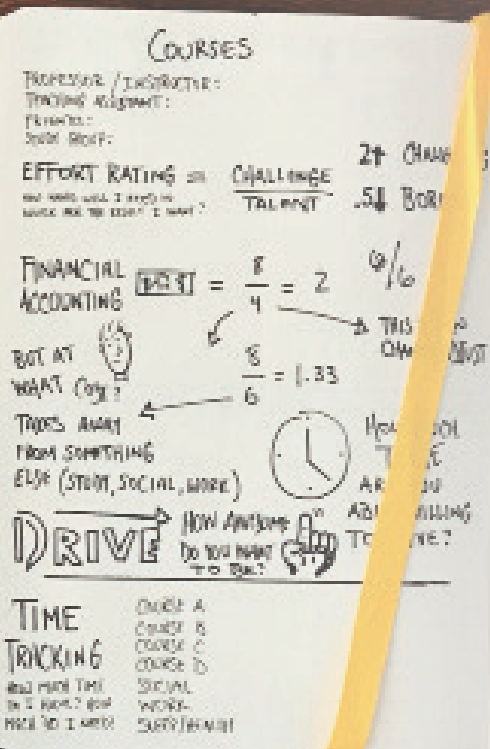 COURSES
PROFESSOR / INSTRUCTOR:
TEACHING ASSISTANT:
FRIENDS:
STUDY GROUP:
EFFORT RATING = CHALLENGE / TALENT
HOW HARD WILL I NEED TO
WORK FOR THE RESULT I WANT?
2↑
.5↓
FINANCIAL
ACCOUNTING
= 8/4 = 2
6/6
THIS
BUT AT
WHAT COST?
8/6 = 1.33
TAKES AWAY
FROM SOMETHING
ELSE (STUDY, SOCIAL, WORK)
DRIVE
HOW AWESOME
DO YOU WANT
TO BE?
TIME
TRACKING
HOW MUCH TIME
DO I HAVE? HOW
MUCH DO I NEED?
COURSE A
COURSE B
COURSE C
COURSE D
SOCIAL
WORK
SLEEP/HEALTH